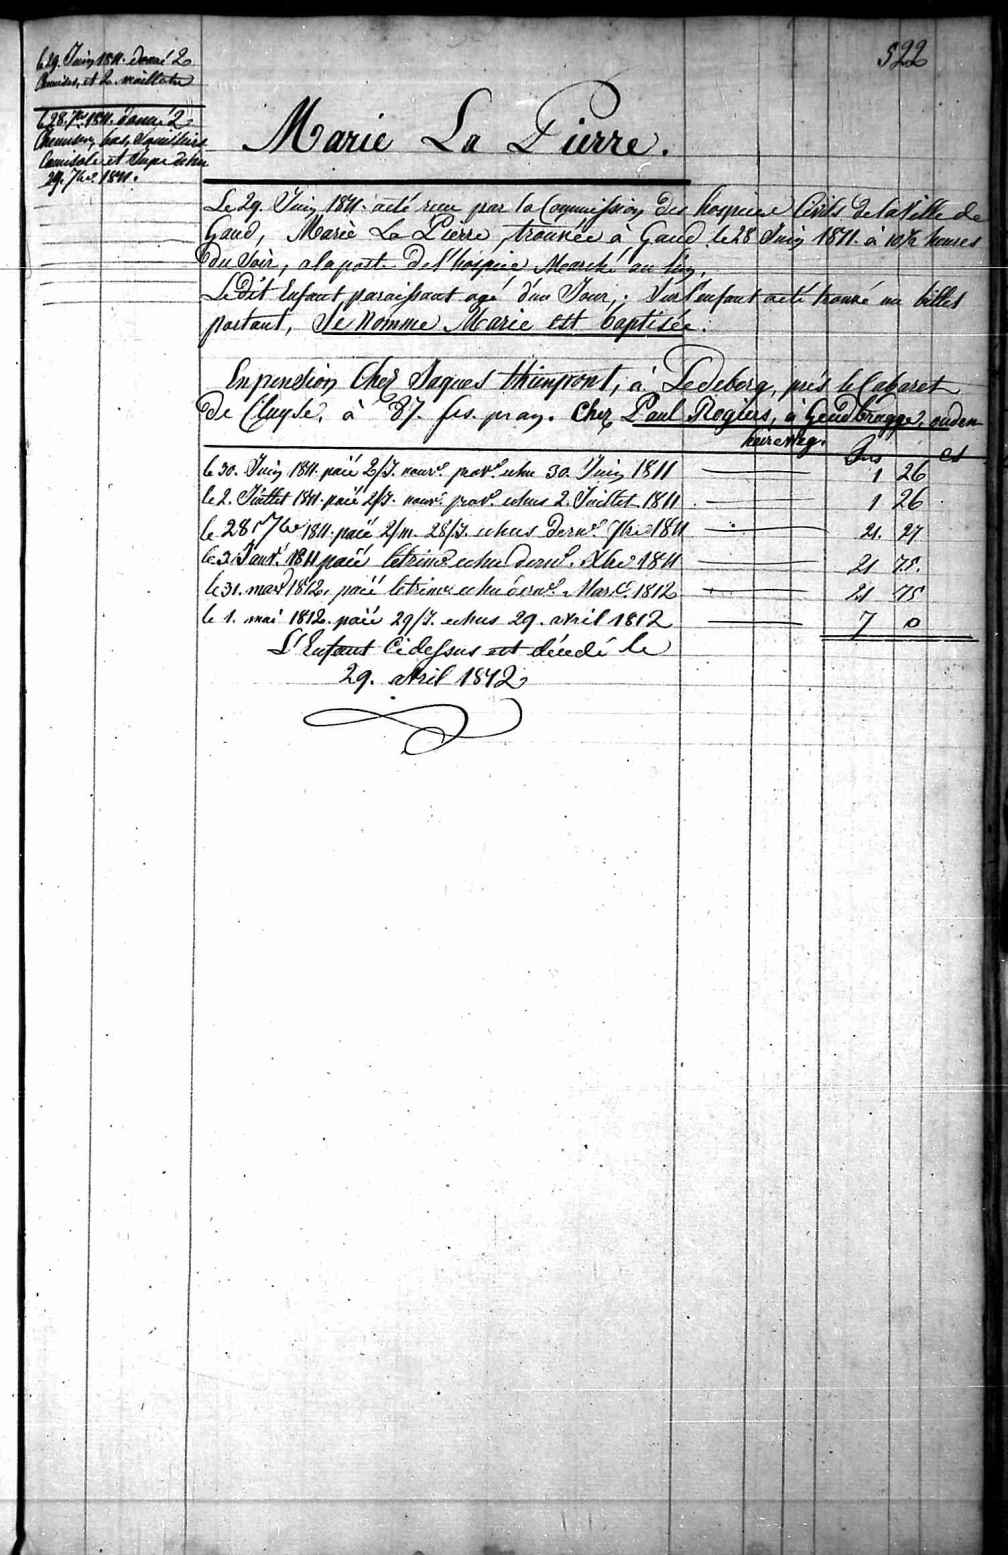 522
le 29. Juin 1811. donné 2
Chemises, et 2 maillots
le 28. 7bre 1811. donné 2
Chemises, bas,
Camisole et Jupe echu
29. 7bre 1811.
Marie La Pierre.
Le 29. Juin 1811 a eté recu par la Commission des hospices Civils de la Ville de
Gand, Marie La Pierre, trouvée à Gand le 28 Juin 1811. à 10½ heures
du Soir, a la porte de l'hospice Marché au lin,
Le dit Enfant, paraissant agé d'un Jour,; Sur l'enfant a eté trouvé un billet
portant, Se Nomme Marie est baptisée.
En pension Chez Jaques thienpont, à Ledeberg, près le Cabaret
de Cluyse, à 87. frs. pr an. Chez Paul Rogiers, à Gendbrugge, ouden
heirweg.
frs cs
le 30. Juin 1811. paié 2/J. nourr. prov. echu 30. Juin 1811 1 26
le 2. Juillet 1811. paié 2/J. nourr. prov. echus 2. Juillet 1811 1 26
le 28. 7bre 1811. paié 2/m. 28/J. echus dern. 7bre 1811 21. 27
le 3. Janv. 1811 paié le trim. echu dern. Xbre 1811 21 75.
le 31. mars 1812. paié le trim. echu dern. Mars. 1812 21 75
le 1. mai 1812. paié 29/J. echus 29. avril 1812 7 0
L'Enfant Cidessus est décédé le
29. avril 1812